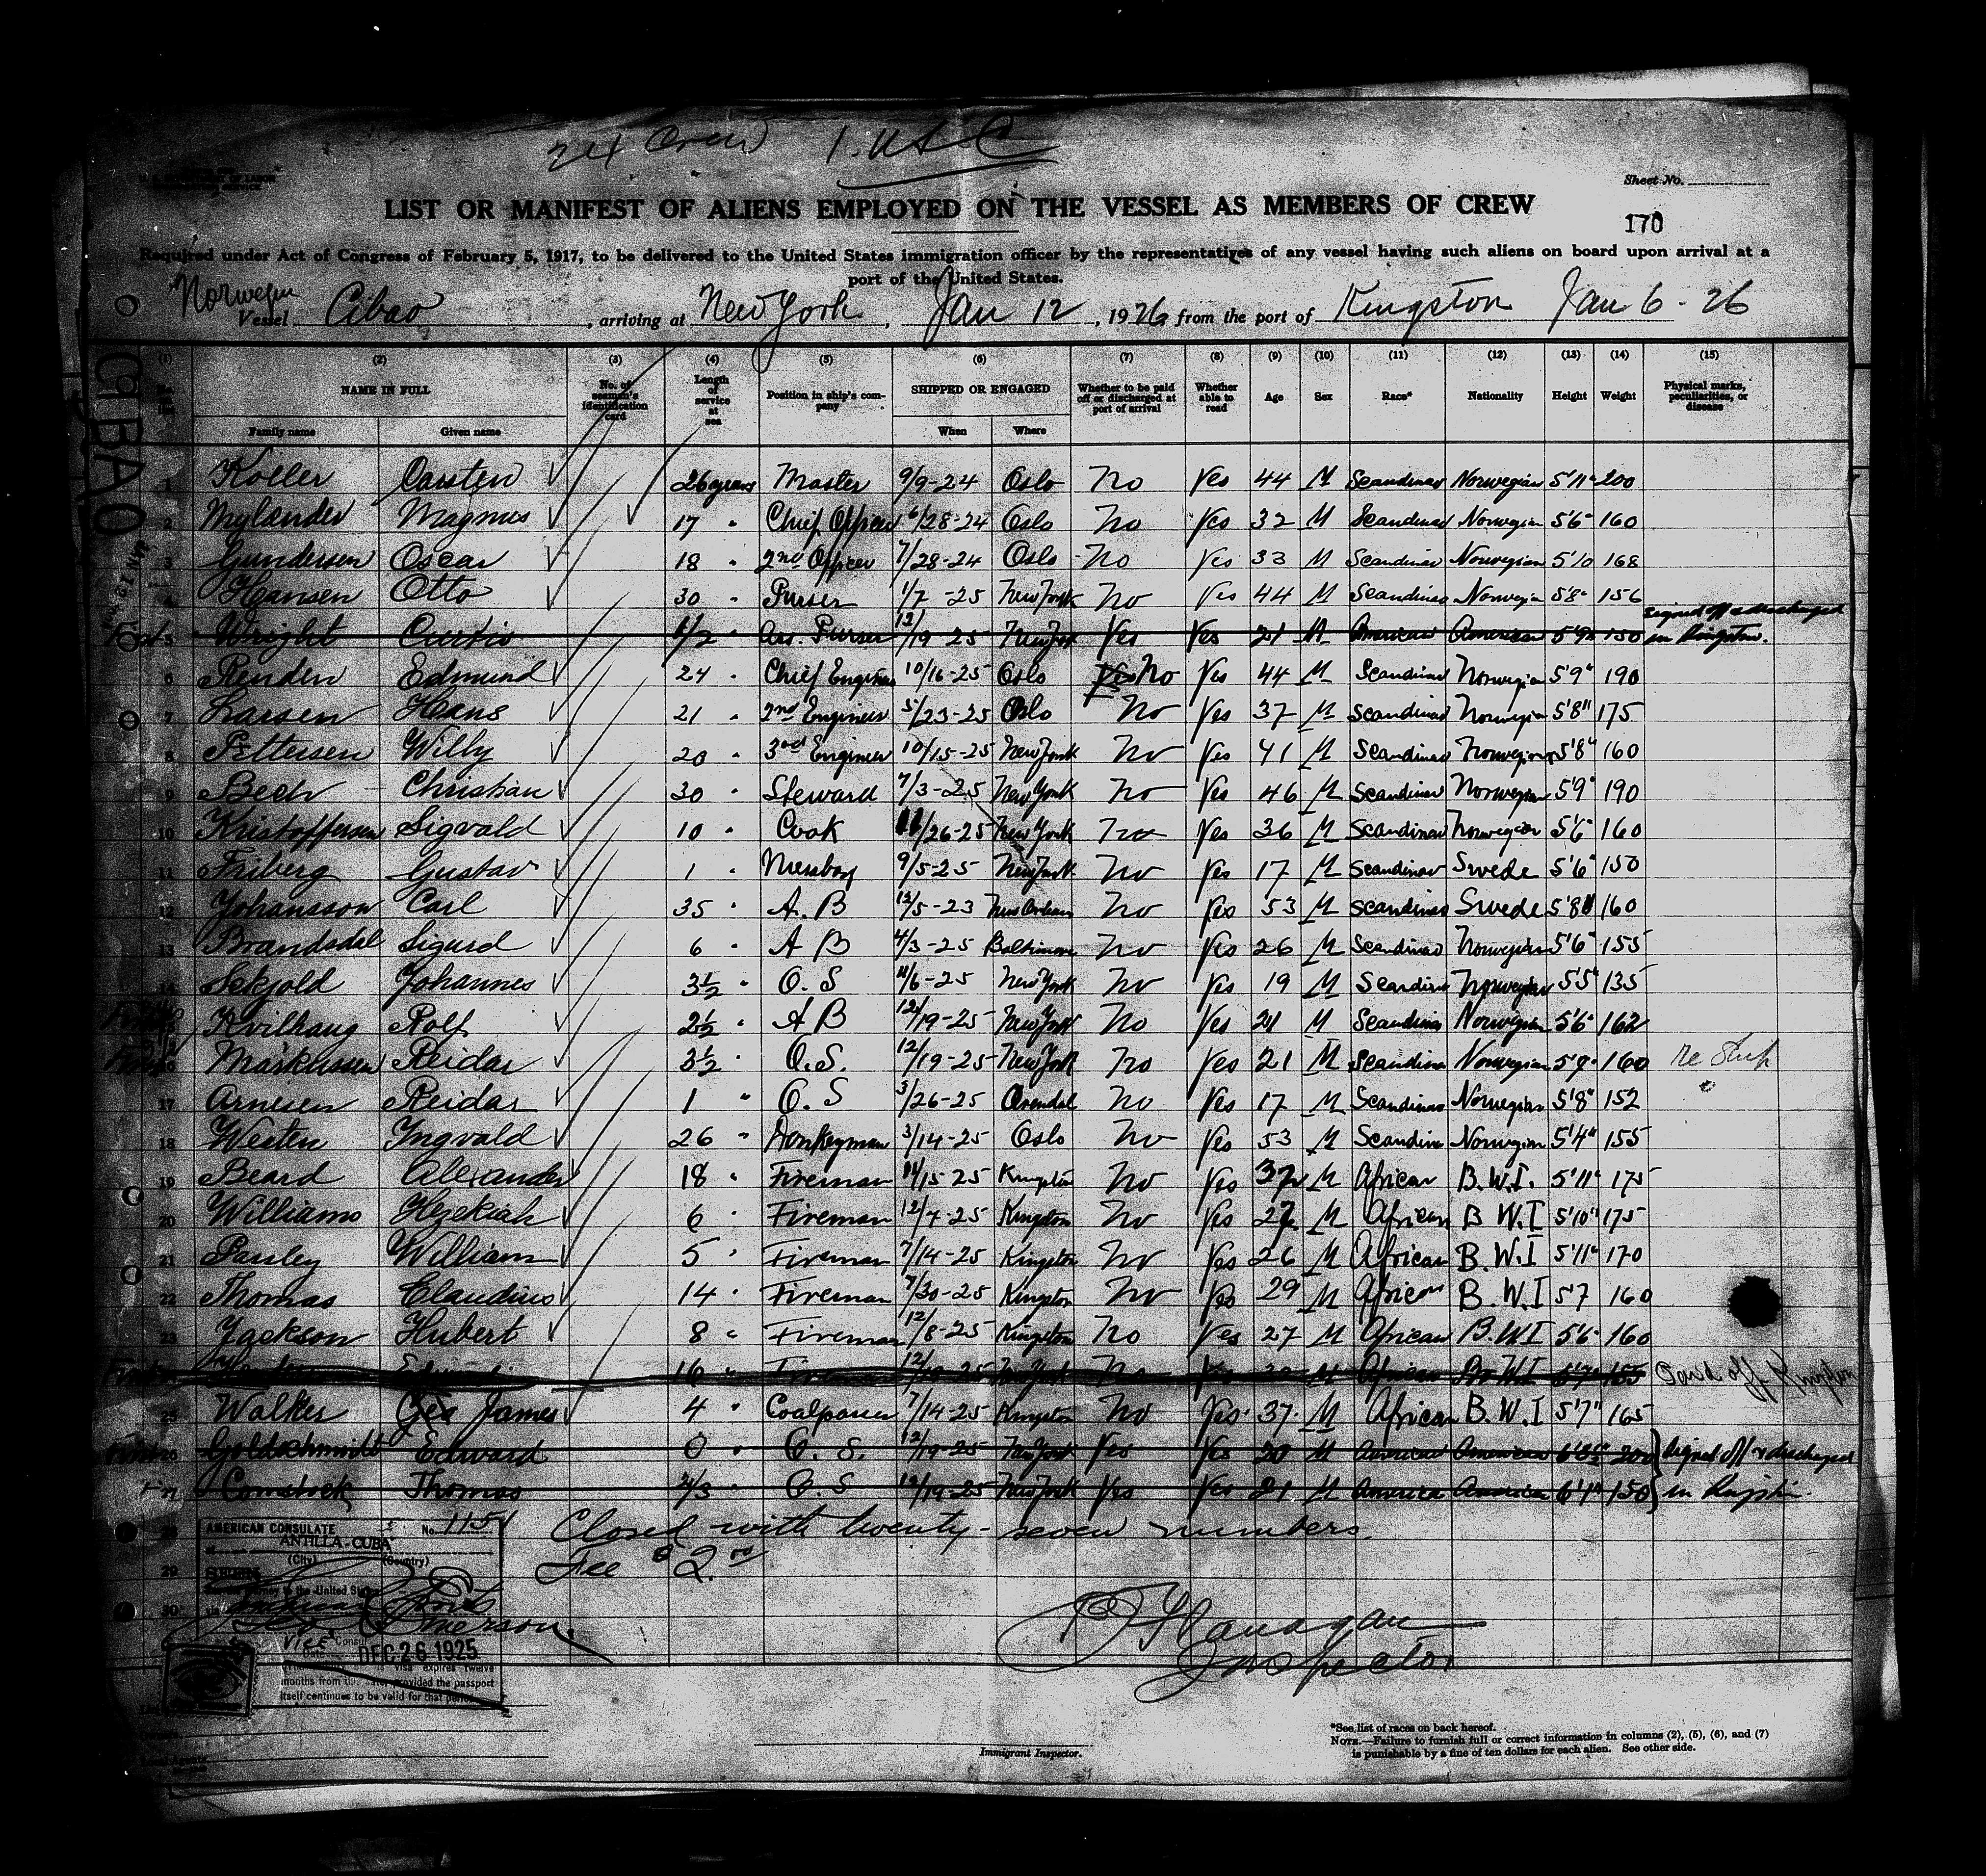 24 Crew 1. USC
Sheet No.
LIST OR MANIFEST OF ALIENS EMPLOYED ON THE VESSEL AS MEMBERS OF CREW
170
Required under Act of Congress of February 5, 1917, to be delivered to the United States immigration officer by the representatives of any vessel having such aliens on board upon arrival at a
port of the United States.
Norwegin
Vessel Cibao, arriving at New York, Jan 12, 1926 from the port of Kingston Jan 6 - 26
CIBAO
(1) (2) (3) (4) (5) (6) (7) (8) (9) (10) (11) (12) (13) (14) (15)
NAME IN FULL No. of seaman's identification card Length of service at sea Position in ship's company SHIPPED OR ENGAGED Whether to be paid off or discharged at port of arrival Whether able to read Age Sex Race* Nationality Height Weight Physical marks, peculiarities, or disease
Family name Given name When Where
1 Koller Carsten 26 years Master 9/9-24 Oslo No Yes 44 M Scandinav Norwegian 5'11" 200
2 Mylander Magnus 17 " Chief Officer 6/28-24 Oslo No Yes 32 M Scandinav Norwegian 5'6" 160
3 Gundersen Oscar 18 " 2nd Officer 7/28-24 Oslo No Yes 33 M Scandinav Norwegian 5'10 168
4 Hansen Otto 30 " Purser 1/7-25 New York No Yes 44 M Scandinav Norwegin 5'8" 156
5 Wright Curtis 1/2 " Ass. Purser 12/19-25 New York Yes Yes 21 M American American 5'9" 150 signed off & discharged in Kingston.
6 Renden Edmund 24 " Chief Engineer 10/16-25 Oslo Yes No Yes 44 M Scandinav Norwegian 5'9" 190
7 Larsen Hans 21 " 2nd Engineer 5/23-25 Oslo No Yes 37 M Scandinav Norwegin 5'8" 175
8 Pettersen Willy 20 " 3rd Engineer 10/15-25 New York No Yes 41 M Scandinav Norwegian 5'8" 160
9 Bech Christian 30 " Steward 7/3-25 New York No Yes 46 M Scandinav Norwegian 5'9" 190
10 Kristoffersen Sigvald 10 " Cook 11/26-25 New York No Yes 36 M Scandinav Norwegian 5'6" 160
11 Friberg Gustav 1 " Messboy 9/5-25 New York No Yes 17 M Scandinav Swede 5'6" 150
12 Johansson Carl 35 " A. B 12/5-23 New Orleans No Yes 53 M Scandinav Swede 5'8" 160
13 Brandsdal Sigurd 6 " A B 4/3-25 Baltimore No Yes 26 M Scandinav Norwegian 5'6" 155
14 Sekjold Johannes 3½ " O. S 11/6-25 New York No Yes 19 M Scandinav Norwegian 5'5" 135
Kvilhaug Rolf 2½ " A B 12/19-25 New York No Yes 21 M Scandinav Norwegian 5'6" 162
Markussen Reidar 3½ " O. S. 12/19-25 New York No Yes 21 M Scandinav Norwegian 5'9" 160
17 Arnesen Reidar 1 " O. S 3/26-25 Arendal No Yes 17 M Scandinav Norwegian 5'8" 152
18 Westen Ingvald 26 " Donkeyman 3/14-25 Oslo No Yes 53 M Scandinav Norwegian 5'4" 155
19 Beard Alexander 18 " Fireman 11/15-25 Kingston No Yes 32 M African B.W.I. 5'11" 175
20 Williams Hezekiah 6 " Fireman 12/4-25 Kingston No Yes 27 M African B W.I 5'10" 175
21 Pauley William 5 " Fireman 7/14-25 Kingston No Yes 26 M African B.W.I 5'11" 170
22 Thomas Claudius 14 " Fireman 7/30-25 Kingston No Yes 29 M African B.W.I 5'7 160
23 Jackson Hubert 8 " Fireman 12/8-25 Kingston No Yes 27 M African B.W.I 5'6" 160
16 " 12/19-25 New York No African 5'7" 155 Paid off Kingston
25 Walker Geo James 4 " Coalpasser 7/14-25 Kingston No Yes 37 M African B.W.I 5'7" 165
26 Goldschmidt Edward 0 " O. S. 12/19-25 New York Yes Yes 20 M American American 200 } Signed off & discharged
Comstock Thomas O. S 12/19-25 New York Yes Yes 21 M America American 6'1" 150 } in Kingston.
Closed with twenty-seven numbers
Fee $2.00
29
30
AMERICAN CONSULATE No. 1151
ANTILLA-CUBA
(City) (Country)
journey to the United States
Emerson
VICE Consul
Date DEC 26 1925
visa expires twelve
months from this date, provided the passport
itself continues to be valid for that period
Flanagan
Inspector
Immigrant Inspector.
*See list of races on back hereof.
NOTE.—Failure to furnish full or correct information in columns (2), (5), (6), and (7)
is punishable by a fine of ten dollars for each alien. See other side.